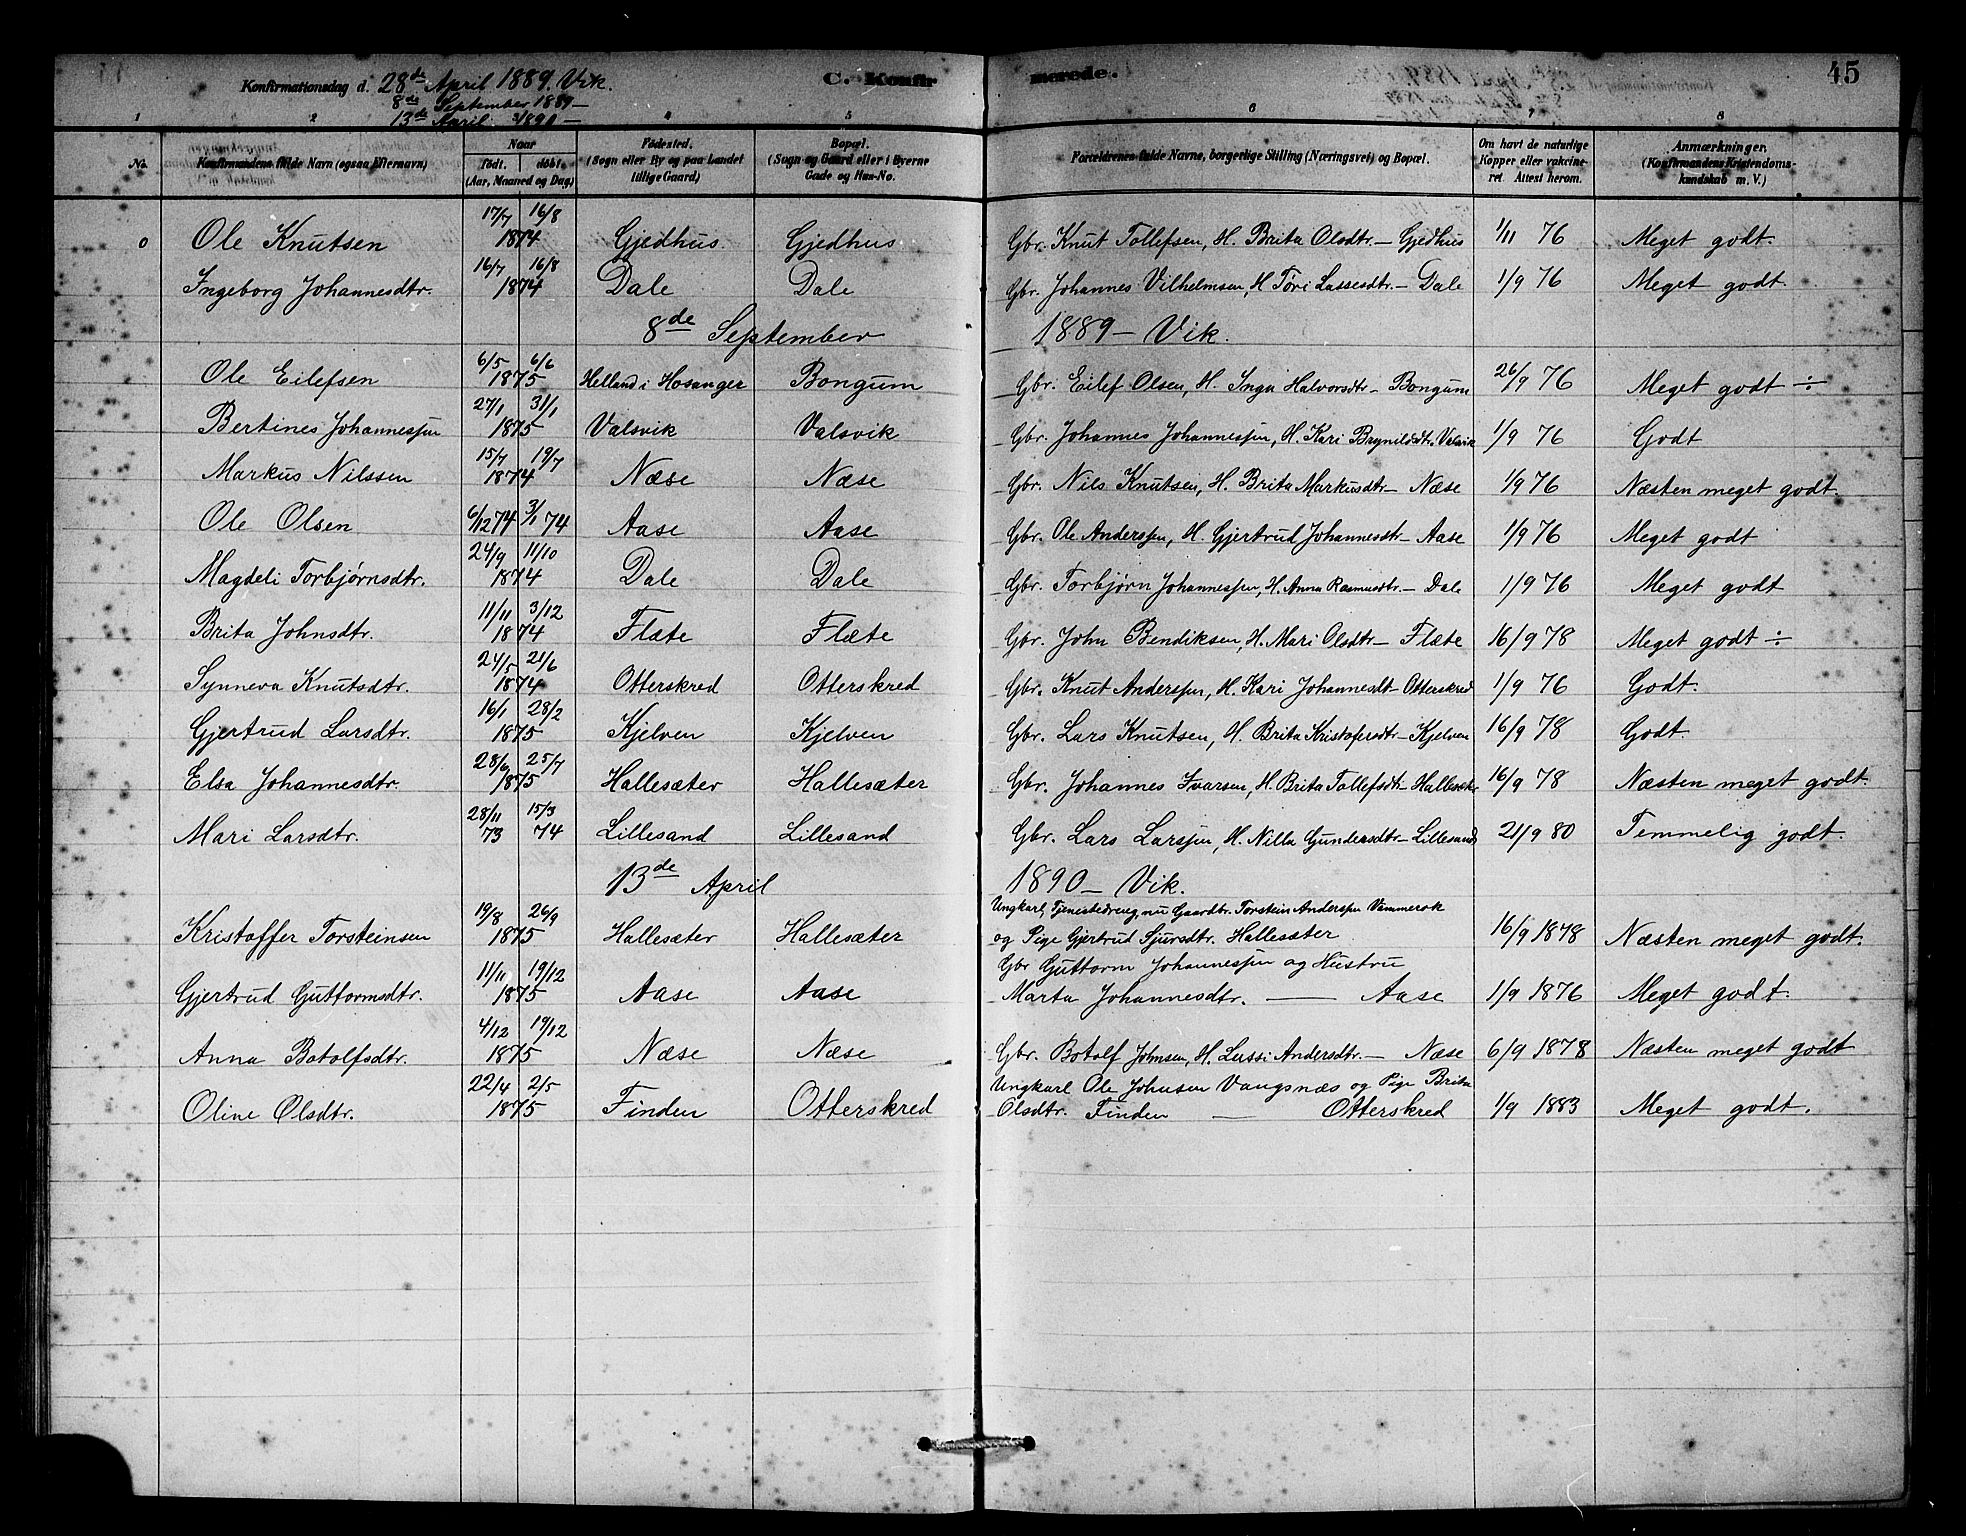 Konfirmationsdag d. 28de April 1889. Vik. C. Konfirmerede. 45
8de September 1889 —
13de April 1890 —
1 2 4 5 6 7 8
No. Konfirmandens fulde Navn (ogsaa Efternavn) Naar født. døbt. (Aar, Maaned og Dag) Fødested. (Sogn eller By og paa Landet tillige Gaard) Bopæl. (Sogn og Gaard eller i Byerne Gade og Hus-No. Forældrenes fulde Navne, borgerlige Stilling (Næringsvei) og Bopæl. Om havt de naturlige Kopper eller vakcineret. Attest herom. Anmærkninger. (Konfirmandens Kristendomskundskab m. V.)
0 Ole Knutsen 17/7 16/8 1874 Gjedhus Gjedhus Gbr. Knut Tollefsen, H. Brita Olsdtr. — Gjedhus 1/11 76 Meget godt.
Ingeborg Johannesdtr. 16/7 16/8 1874 Dale Dale Gbr. Johannes Vilhelmsen, H. Tøri Lassesdtr. — Dale 1/9 76 Meget godt.
8de September 1889 — Vik.
Ole Eilefsen 6/5 6/6 1875 Helland i Hosanger Bongum Gbr. Eilef Olsen, H. Inga Halvorsdtr — Bongum 26/9 76 Meget godt ÷
Bertines Johannessen 27/1 31/1 1875 Valsvik Valsvik Gbr. Johannes Johannessen, H. Kari Brynildsdtr. Valsvik 1/9 76 Godt
Markus Nilssen 15/7 19/7 1874 Næse Næse Gbr. Nils Knutsen, H. Brita Markusdtr — Næse 1/9 76 Næsten meget godt.
Ole Olsen 6/12 74 3/1 74 Aase Aase Gbr. Ole Anderssen, H. Gjertrud Johannesdtr — Aase 1/9 76 Meget godt
Magdeli Torbjørnsdtr. 24/9 11/10 1874 Dale Dale Gbr. Torbjørn Johannessen, H. Anna Rasmusdtr. — Dale 1/9 76 Meget godt
Brita Johnsdtr. 11/11 3/12 1874 Flæte Flæte Gbr. John Bendiksen, H. Mari Olsdtr — Flæte 16/9 78 Meget godt ÷
Synneva Knutsdtr. 24/5 21/6 1874 Otterskred Otterskred Gbr. Knut Anderssen, H. Kari Johannesdt — Otterskred 1/9 76 Godt.
Gjertrud Larsdtr. 16/1 28/2 1875 Kjelven Kjelven Gbr. Lars Knutsen, H. Brita Kristofersdtr — Kjelven 16/9 78 Godt.
Elsa Johannesdtr. 28/6 25/7 1875 Hallesæter Hallesæter Gbr. Johannes Ivarsen, H. Brita Tollefsdtr Hallesæter 16/9 78 Næsten meget godt.
Mari Larsdtr. 28/11 73 15/3 74 Lillesand Lillesand Gbr. Lars Larssen, H. Nilla Gundersdtr — Lillesand 21/9 80 Temmelig godt.
13de April 1890 — Vik.
Ungkarl, Tjenestedreng, nu Gaardbr. Torstein Anderssen Vammerok
Kristoffer Torsteinsen 19/8 26/9 1875 Hallesæter Hallesæter og Pige Gjertrud Sjursdtr. Hallesæter 16/9 1878 Næsten meget godt.
Gbr Guttorm Johannessen og Hustru
Gjertrud Guttormsdtr. 11/11 19/12 1875 Aase Aase Marta Johannesdtr. — Aase 1/9 1876 Meget godt.
Anna Botolfsdtr. 4/12 19/12 1875 Næse Næse Gbr. Botolf Johnsen, H. Lussi Andersdtr. — Næse 6/9 1878 Næsten meget godt
Ungkarl Ole Johnsen Vangsnæs og Pige Brita
Oline Olsdtr. 22/4 2/5 1875 Finden Otterskred Olsdtr. Finden — Otterskred 1/9 1883 Meget godt.